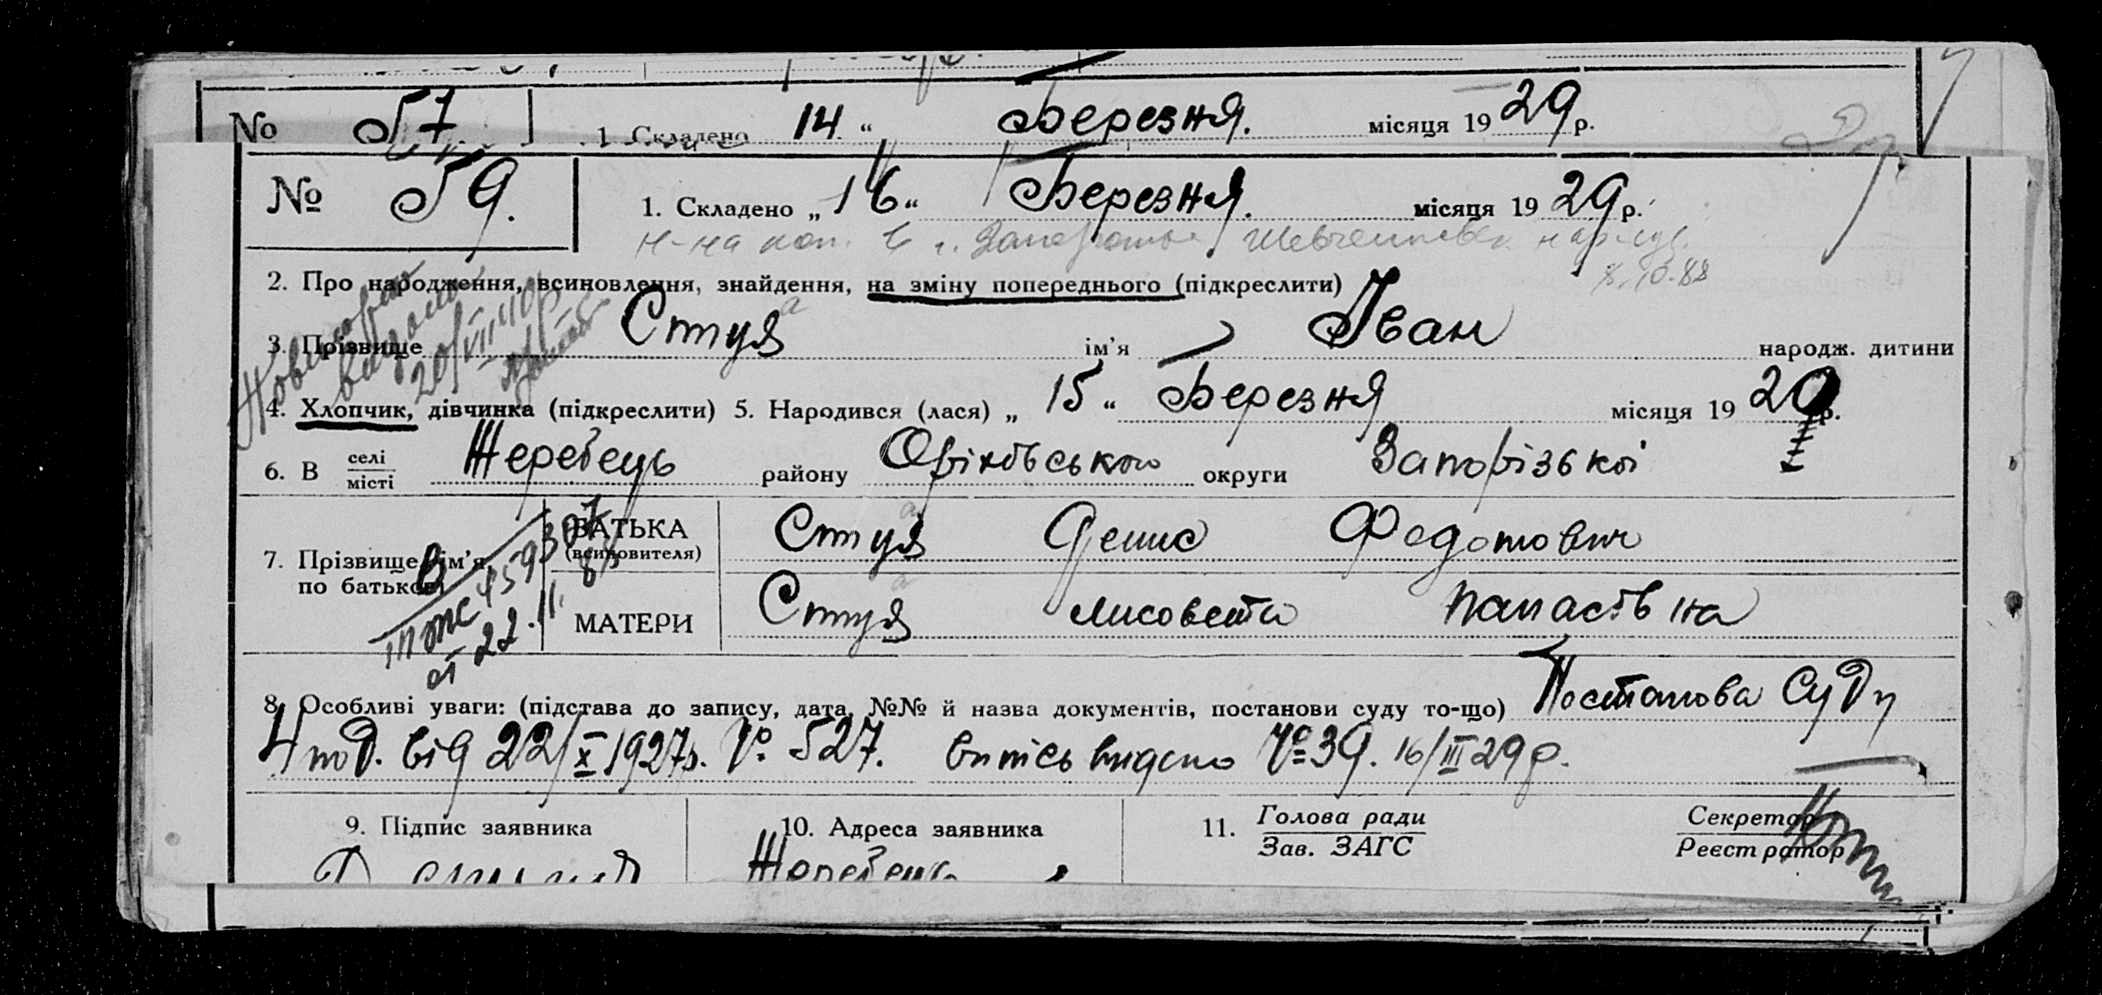 № 57 1. Складено 14 " Березня. місяця 1929 р.
№ 59. 1. Складено „ 16 " Березня. місяця 1929 р.
Шевченковск
8.10.88
2. Про народження, всиновлення, знайдення, на зміну попереднього (підкреслити)
3. Прізвище Стуя ім'я Іван народж. дитини
а
20/VII 40р
4. Хлопчик, дівчинка (підкреслити) 5. Народився (лася) „ 15 " Березня місяця 19 р.
6. В селі місті Жеребець району Оріхівського округи Запорізької
7. Прізвище, ім'я, по батькові
БАТЬКА (всиновителя) Стуя Денис Федотович
а
МАТЕРИ Стуя Лисовета Панасівна
а
от 22.11.
8. Особливі уваги: (підстава до запису, дата, №№ й назва документів, постанови суду то-що) Постанова Суду
від 22/X 1927р. № 527. витіс видано № 39. 16/III 29р.
9. Підпис заявника
10. Адреса заявника
Жеребець
11. Голова ради
Зав. ЗАГС
Секретар
Реєстратор